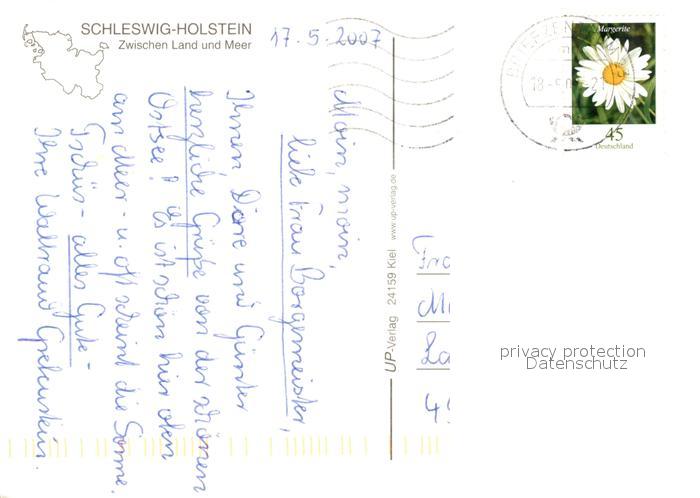 SCHLESWIG-HOLSTEIN
Zwischen Land und Meer
17.5.2007
Moin, moin,
liebe Frau Borgemeister,
Ihnen Dore und Günter
herzliche Grüße von der schönen
Ostsee! Es ist schön hier oben
am Meer - u. oft scheint die Sonne.
Tschüs - alles Gute -
Ihre Waltraud
UP-Verlag 24159 Kiel www.up-verlag.de
Margerite
45
Deutschland
Fra
Mi
La
privacy protection
Datenschutz